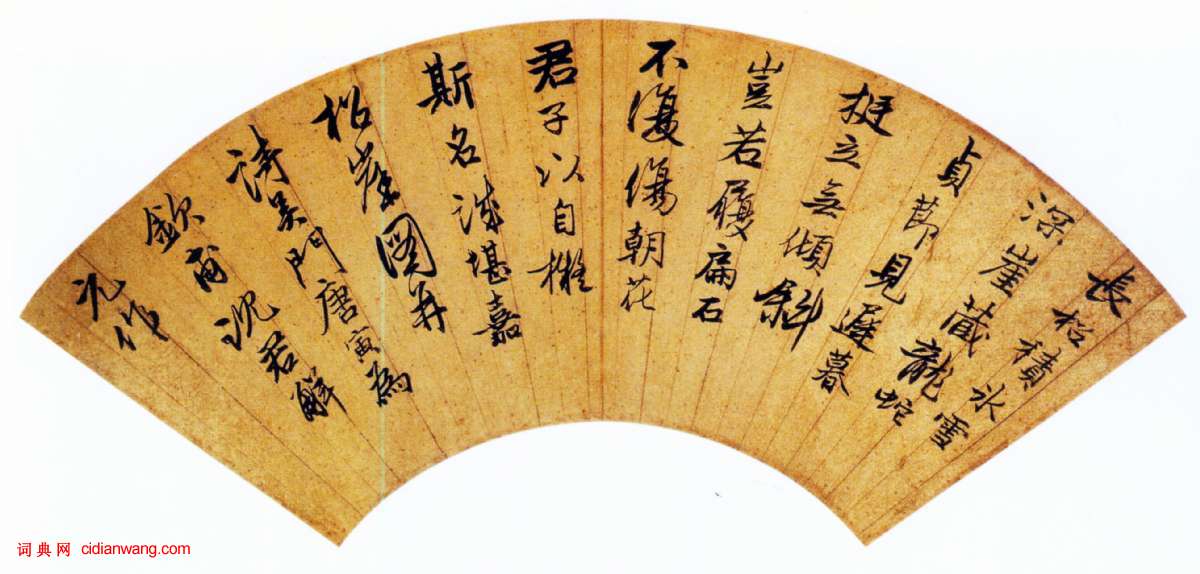 長松積氷雪
深崖蔵龍蛇
貞節見遲暮
挺立無傾斜
豈若履扁石
不復傷朝花
君子以自擬
斯名誠堪嘉
松崖圖并
詩吳門唐寅為
欽甫沈君解
元作
词典网 cidianwang.com